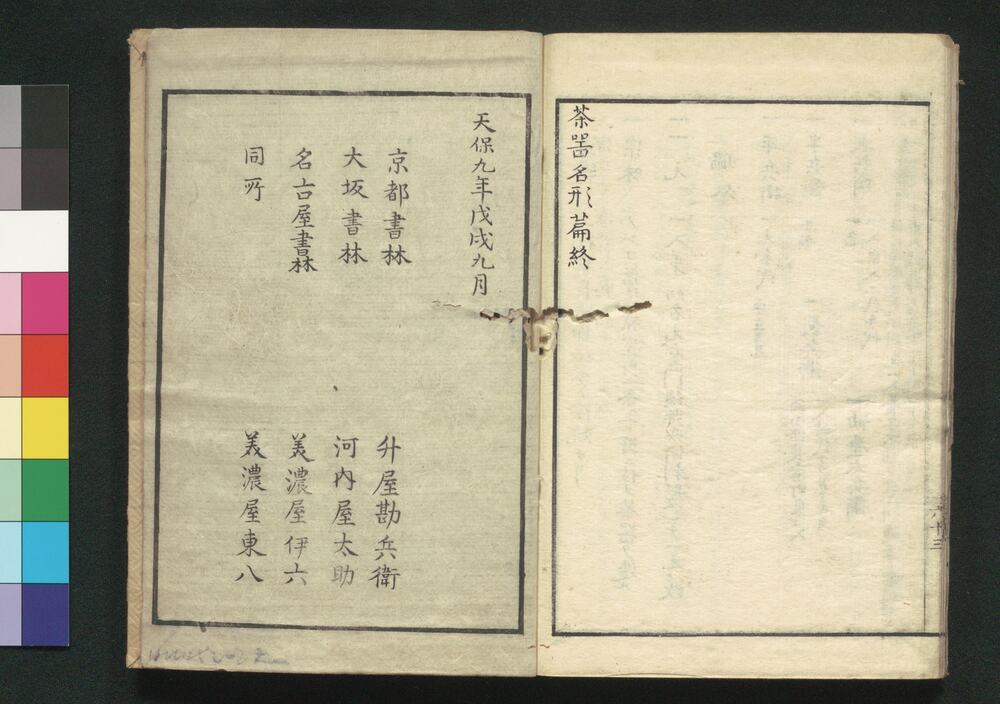 茶噐名形篇終
天保九年戊戌九月
京都書林 升屋勘兵衛
大坂書林 河内屋太助
名古屋書林 美濃屋伊六
同所 美濃屋東八